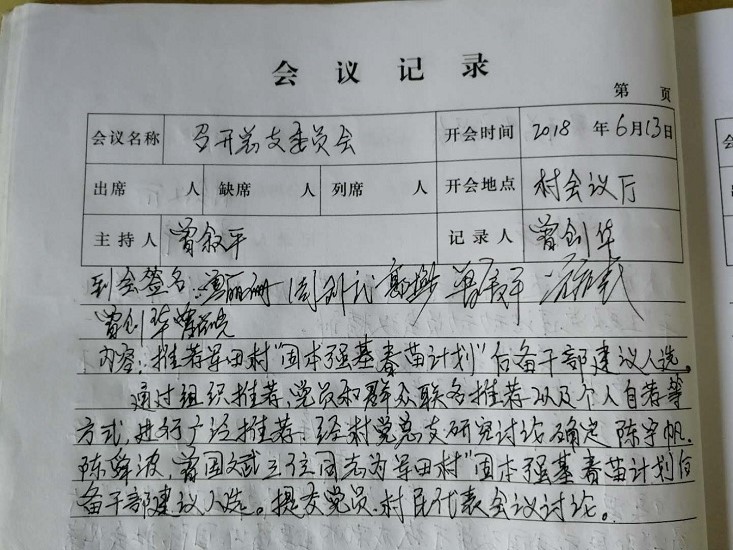 会议记录
第 页
会议名称 召开党支委员会 开会时间 2018年6月13日
出席 人 缺席 人 列席 人 开会地点 村会议厅
主持人 曾叙平 记录人 曾创华
到会签名:
曾创华
内容:推荐导田村"固本强基春苗计划"后备干部建议人选。
通过组织推荐、党员和群众联名推荐以及个人自荐等
方式,进行广泛推荐,经村党总支研究讨论确定 陈宇帆、
陈舜波、曾国文武三位同志为导田村"固本强基春苗计划后
备干部建议人选。提交党员、村民代表会议讨论。